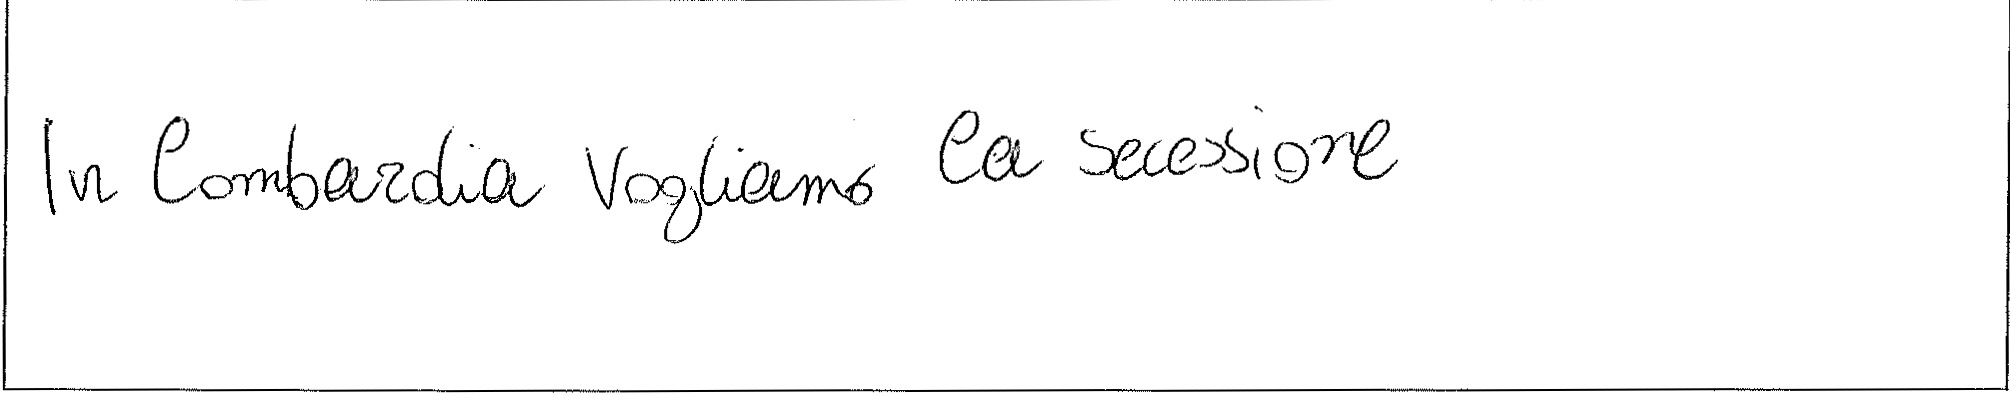 In Lombardia Vogliamo la secessione